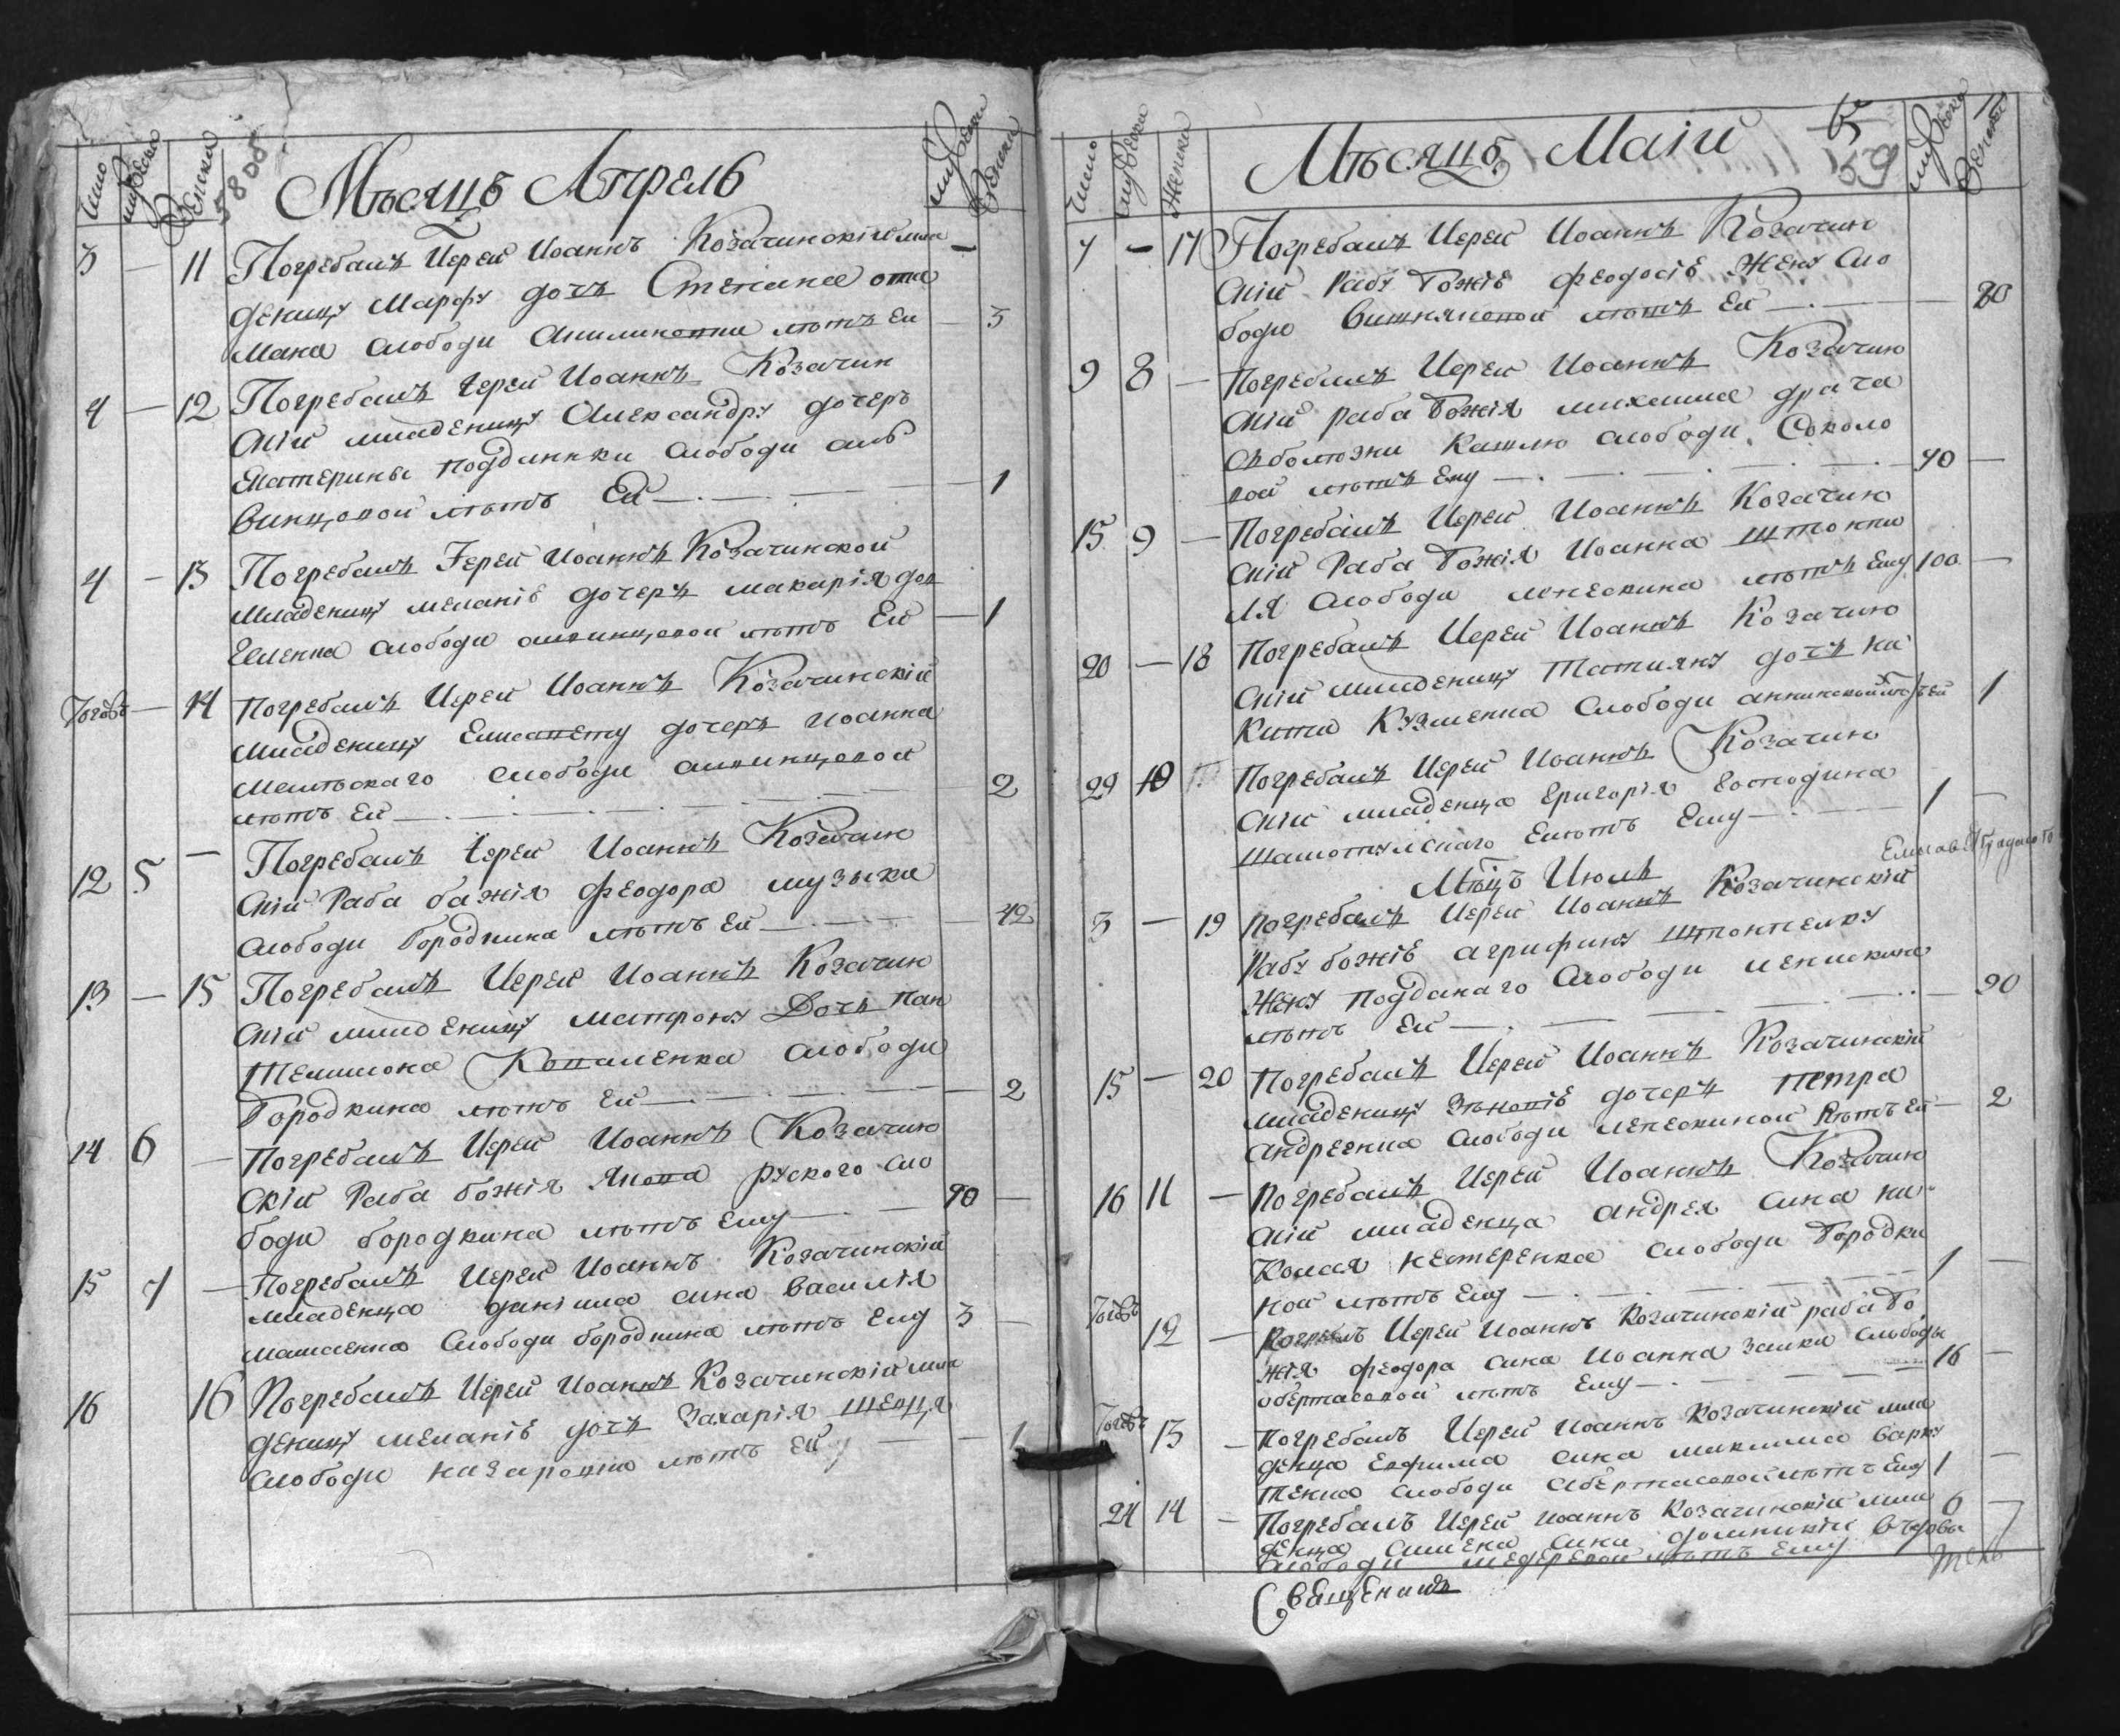 число мужеска женска мужеска женска
5808
Мѣсяцъ Апрель
3 — 11 Погребалъ Иерей Иоаннъ Козачинскій мла —
деницу Марфу дочъ Степана
мана слободи лѣтъ Ей — 3
4 — 12 Погребалъ Іерей Иоаннъ Козачин
скій младеницу Александру дочеръ
Екатерины подданки слободи аль
винцовой лѣтъ Ей — 1
4 — 13 Погребалъ Іерей Иоаннъ Козачинской
Младеницу меланію дочеръ макарія
слободи алвинцовой лѣтъ Ей — 1
Тогожъ — 14 Погребалъ Иерей Иоаннъ Козачинскій
Младеницу Елисавету дочеръ Иоанна
слободи алвинцовой
лѣтъ Ей — 2
12 5 — Погребалъ Іерей Иоаннъ Козачин
скій Раба бажія Феодора музыка
слободи Бородкина лѣтъ Ей — 42
13 — 15 Погребалъ Иерей Иоаннъ Козачин
скій младеницу Матрону Дочъ Пан
телимона Коваленка слободи
Бородкина лѣтъ Ей — 2
14 6 — Погребалъ Иерей Иоаннъ Козачин
скій Раба божія Якова руского сло
боди бородкина лѣтъ Ему — 90 —
15 7 — Погребалъ Иерей Иоаннъ Козачинскій
младенца данііла сина василія
слободи бородкина лѣтъ Ему 3 —
16 16 Погребалъ Иерей Иоаннъ Козачинскій мла
деницу меланію дочъ Захарія Шевця
слободи назаровки лѣтъ Ей — 1
число мужеска женска мужеска женска
Мѣсяцъ Маіи
59
7 — 17 Погребалъ Иерей Иоаннъ Козачин
скій Рабу Божію Феодосію Жену сло
боди Вишняковой лѣтъ Ей — 80
9 8 — Погребалъ Иерей Иоаннъ Козачин
скій раба Божія михаила драча
слободи Соколо
вой лѣтъ Ему — 70 —
15 9 — Погребалъ Иерей Иоаннъ Козачин
скій Раба Божія Иоанна
ля слободи лѣтъ Ему 100 —
20 — 18 Погребалъ Иерей Иоаннъ Козачин
скій младеницу Татияну дочъ Ни
кити Кузменка слободи 1
29 10 Погребалъ Иерей Иоаннъ Козачин
скій младенца Григорія Господина
Ему — 1 —
Мѣцъ Июль
3 — 19 Погребалъ Иерей Иоаннъ Козачинскій
Рабу божію агрифину
Жену подданаго слободи
лѣтъ Ей — 90
15 — 20 Погребалъ Иерей Иоаннъ Козачинскій
младеницу дочеръ петра
андреенка слободи лѣтъ Ей — 2
16 11 — Погребалъ Иерей Иоаннъ Козачин
скій младенца андрея сина ни
колая нестеренка слободи Бородки
ной лѣтъ Ему — 1 —
Тогожъ 12 — Погребалъ Иерей Иоаннъ Козачинскій раба Бо
жія феодора сина Иоанна слободы
обертасовой лѣтъ Ему — 16 —
Тогожъ 13 — Погребалъ Иерей Иоаннъ Козачинскій мла
денца Евфима сина максима
слободи обертасовой лѣтъ Ему 1 —
24 14 — Погребалъ Иерей Иоаннъ Козачинскій мла 6
денца сина
слободи лѣтъ Ему
Священикъ